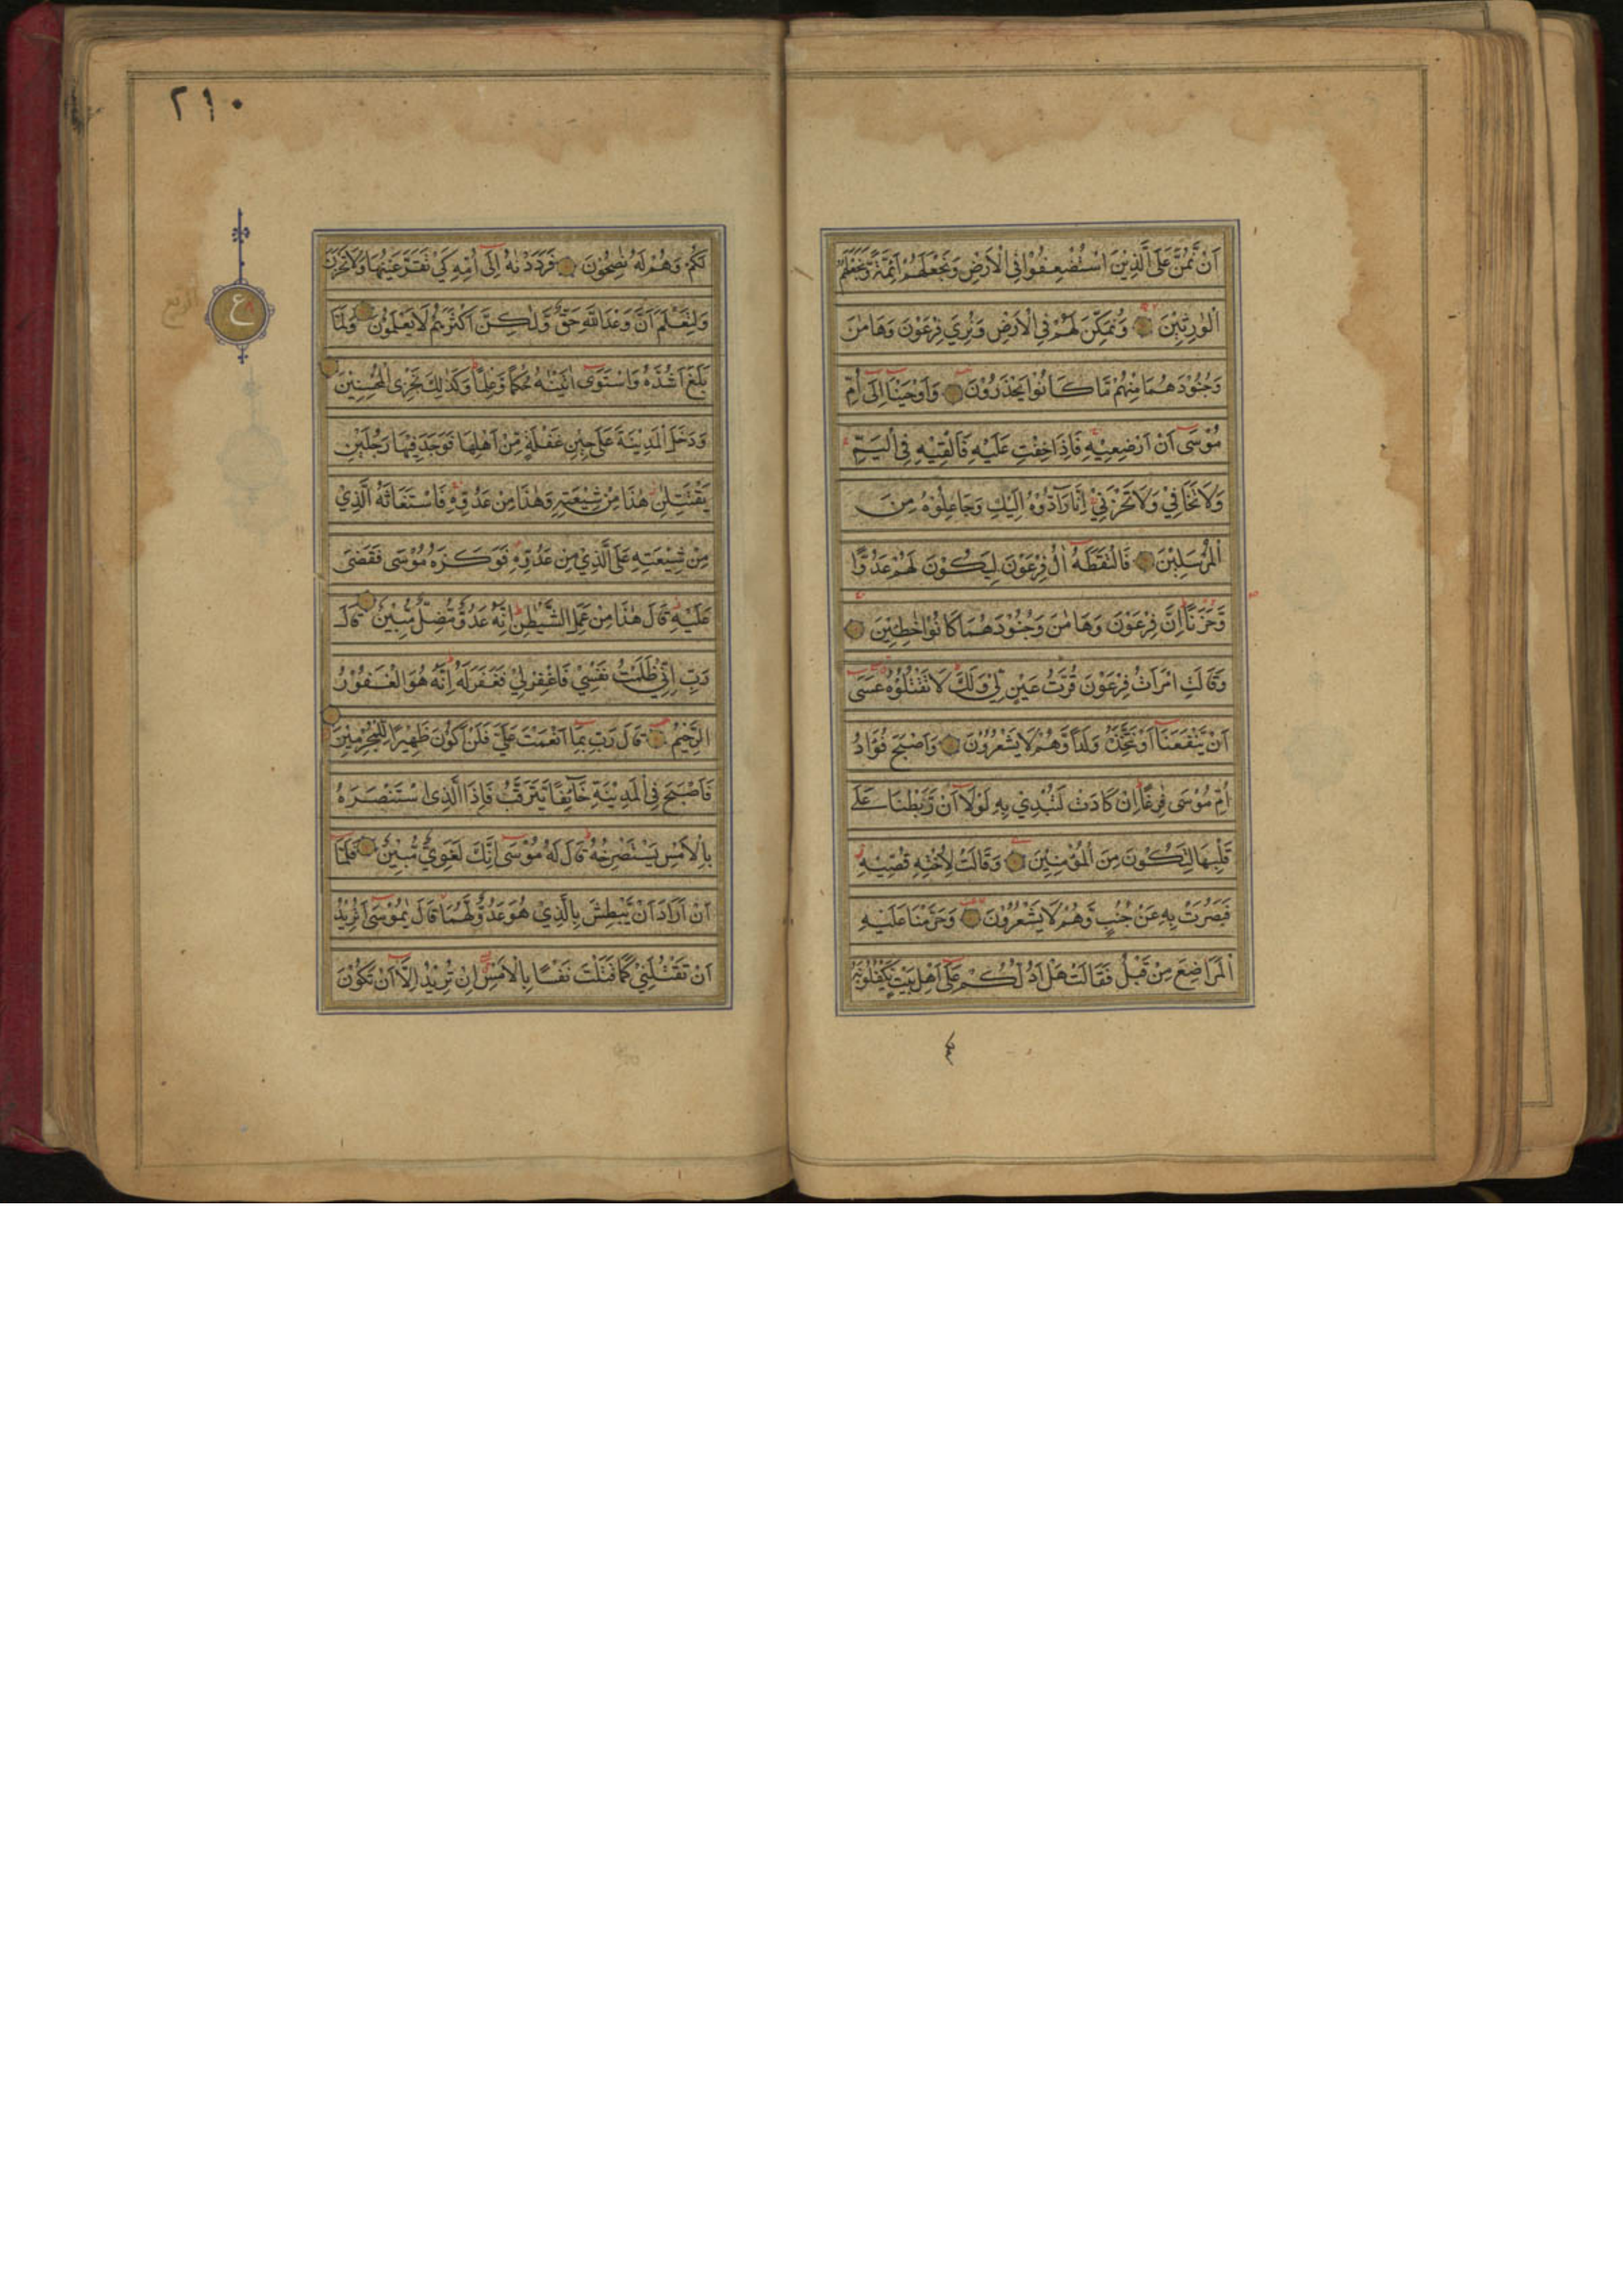 اَنْ نَّمُنَّ عَلَى الَّذِيْنَ اسْتُضْعِفُوْا فِي الْاَرْضِ وَنَجْعَلَهُمْ اَئِمَّةً وَّنَجْعَلَهُمُ
الْوٰرِثِيْنَ وَنُمَكِّنَ لَهُمْ فِي الْاَرْضِ وَنُرِيَ فِرْعَوْنَ وَهَامٰنَ
وَجُنُوْدَهُمَا مِنْهُمْ مَّا كَانُوْا يَحْذَرُوْنَ وَاَوْحَيْنَا اِلٰى اُمِّ
مُوْسٰى اَنْ اَرْضِعِيْهِ فَاِذَا خِفْتِ عَلَيْهِ فَاَلْقِيْهِ فِي الْيَمِّ
وَلَا تَخَافِيْ وَلَا تَحْزَنِيْ اِنَّا رَآدُّوْهُ اِلَيْكِ وَجَاعِلُوْهُ مِنَ
الْمُرْسَلِيْنَ فَالْتَقَطَهٗ اٰلُ فِرْعَوْنَ لِيَكُوْنَ لَهُمْ عَدُوًّا
وَّحَزَنًا اِنَّ فِرْعَوْنَ وَهَامٰنَ وَجُنُوْدَهُمَا كَانُوْا خٰطِئِيْنَ
وَقَالَتِ امْرَاَتُ فِرْعَوْنَ قُرَّتُ عَيْنٍ لِّيْ وَلَكَ لَا تَقْتُلُوْهُ عَسٰى
اَنْ يَّنْفَعَنَا اَوْ نَتَّخِذَهٗ وَلَدًا وَّهُمْ لَا يَشْعُرُوْنَ وَاَصْبَحَ فُؤَادُ
اُمِّ مُوْسٰى فٰرِغًا اِنْ كَادَتْ لَتُبْدِيْ بِهٖ لَوْلَا اَنْ رَّبَطْنَا عَلٰى
قَلْبِهَا لِتَكُوْنَ مِنَ الْمُؤْمِنِيْنَ وَقَالَتْ لِاُخْتِهٖ قُصِّيْهِ
فَبَصُرَتْ بِهٖ عَنْ جُنُبٍ وَّهُمْ لَا يَشْعُرُوْنَ وَحَرَّمْنَا عَلَيْهِ
الْمَرَاضِعَ مِنْ قَبْلُ فَقَالَتْ هَلْ اَدُلُّكُمْ عَلٰى اَهْلِ بَيْتٍ يَّكْفُلُوْنَهٗ
٢٩٠
لَكُمْ وَهُمْ لَهٗ نٰصِحُوْنَ فَرَدَدْنٰهُ اِلٰى اُمِّهٖ كَيْ تَقَرَّ عَيْنُهَا وَلَا تَحْزَنَ
وَلِتَعْلَمَ اَنَّ وَعْدَ اللّٰهِ حَقٌّ وَّلٰكِنَّ اَكْثَرَهُمْ لَا يَعْلَمُوْنَ وَلَمَّا
بَلَغَ اَشُدَّهٗ وَاسْتَوٰى اٰتَيْنٰهُ حُكْمًا وَّعِلْمًا وَكَذٰلِكَ نَجْزِي الْمُحْسِنِيْنَ
وَدَخَلَ الْمَدِيْنَةَ عَلٰى حِيْنِ غَفْلَةٍ مِّنْ اَهْلِهَا فَوَجَدَ فِيْهَا رَجُلَيْنِ
يَقْتَتِلٰنِ هٰذَا مِنْ شِيْعَتِهٖ وَهٰذَا مِنْ عَدُوِّهٖ فَاسْتَغَاثَهُ الَّذِيْ
مِنْ شِيْعَتِهٖ عَلَى الَّذِيْ مِنْ عَدُوِّهٖ فَوَكَزَهٗ مُوْسٰى فَقَضٰى
عَلَيْهِ قَالَ هٰذَا مِنْ عَمَلِ الشَّيْطٰنِ اِنَّهٗ عَدُوٌّ مُّضِلٌّ مُّبِيْنٌ قَالَ
رَبِّ اِنِّيْ ظَلَمْتُ نَفْسِيْ فَاغْفِرْ لِيْ فَغَفَرَ لَهٗ اِنَّهٗ هُوَ الْغَفُوْرُ
الرَّحِيْمُ قَالَ رَبِّ بِمَا اَنْعَمْتَ عَلَيَّ فَلَنْ اَكُوْنَ ظَهِيْرًا لِّلْمُجْرِمِيْنَ
فَاَصْبَحَ فِي الْمَدِيْنَةِ خَآئِفًا يَّتَرَقَّبُ فَاِذَا الَّذِي اسْتَنْصَرَهٗ
بِالْاَمْسِ يَسْتَصْرِخُهٗ قَالَ لَهٗ مُوْسٰى اِنَّكَ لَغَوِيٌّ مُّبِيْنٌ فَلَمَّا
اَنْ اَرَادَ اَنْ يَّبْطِشَ بِالَّذِيْ هُوَ عَدُوٌّ لَّهُمَا قَالَ يٰمُوْسٰى اَتُرِيْدُ
اَنْ تَقْتُلَنِيْ كَمَا قَتَلْتَ نَفْسًا بِالْاَمْسِ اِنْ تُرِيْدُ اِلَّا اَنْ تَكُوْنَ
ع
الربع